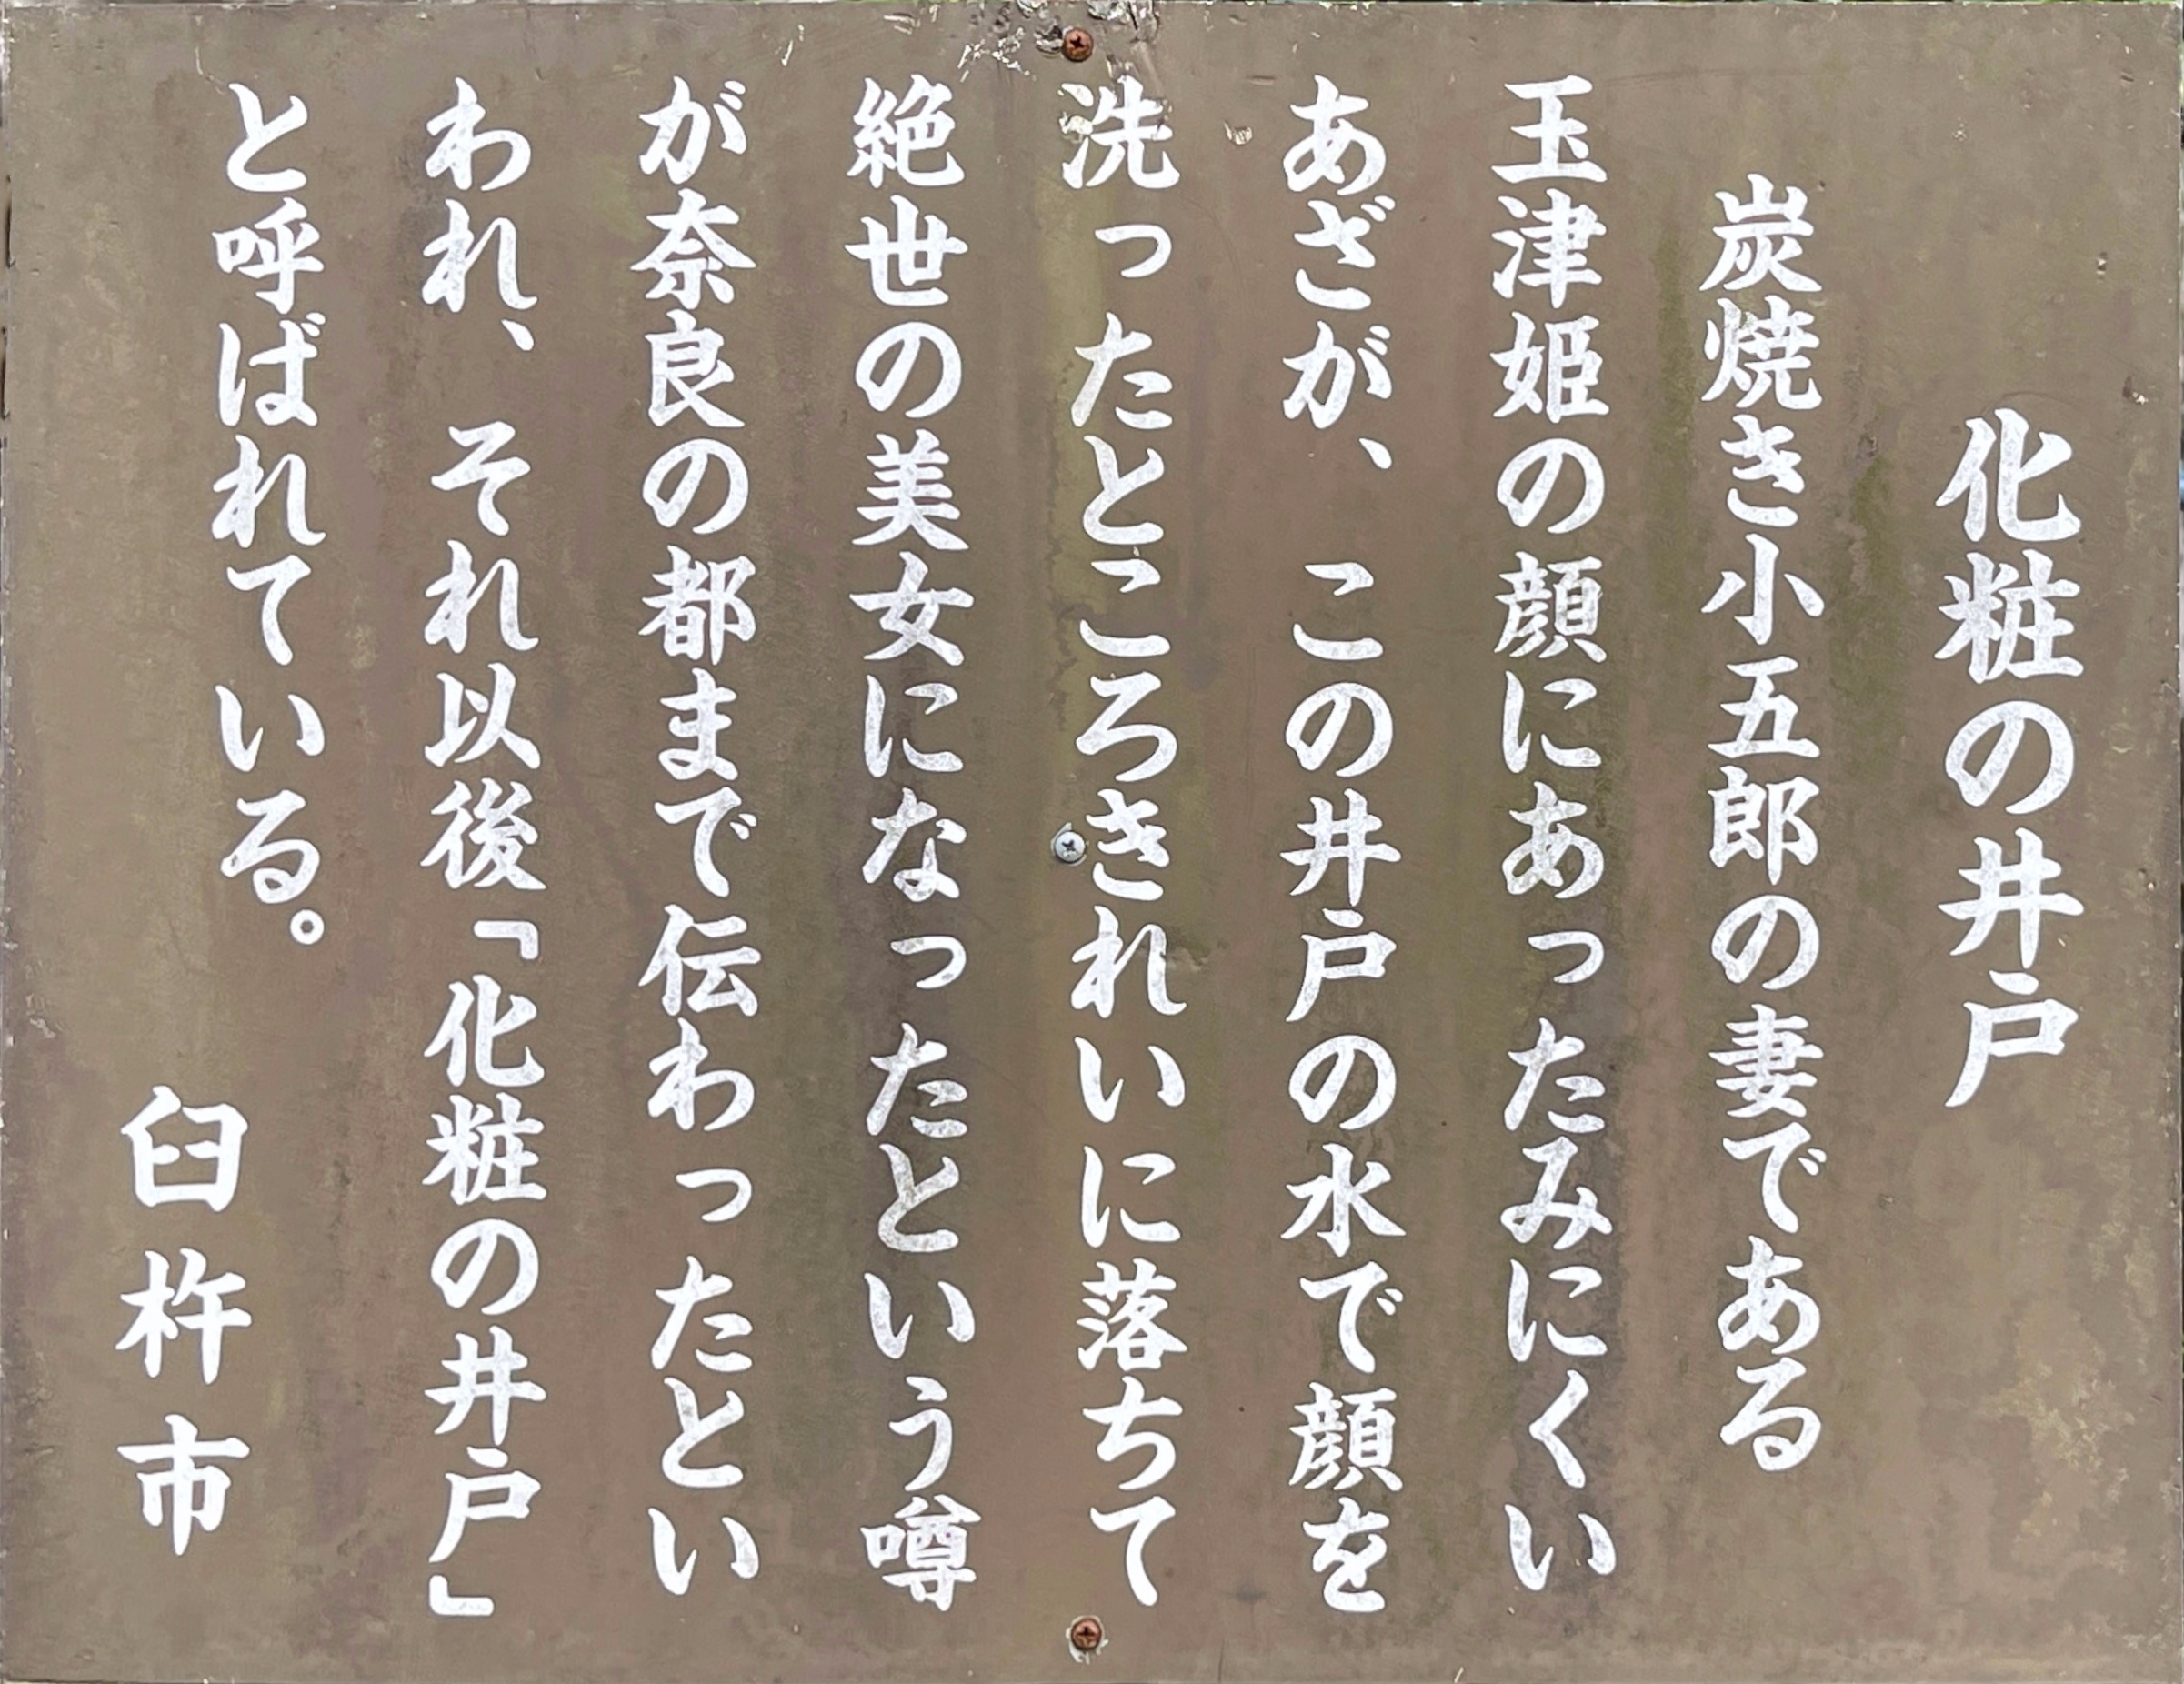 化粧の井戸
炭焼き小五郎の妻である
玉津姫の顔にあったみにくい
あざが、この井戸の水で顔を
洗ったところきれいに落ちて
絶世の美女になったという噂
が奈良の都まで伝わったとい
われ、それ以後「化粧の井戸」
と呼ばれている。
臼杵市